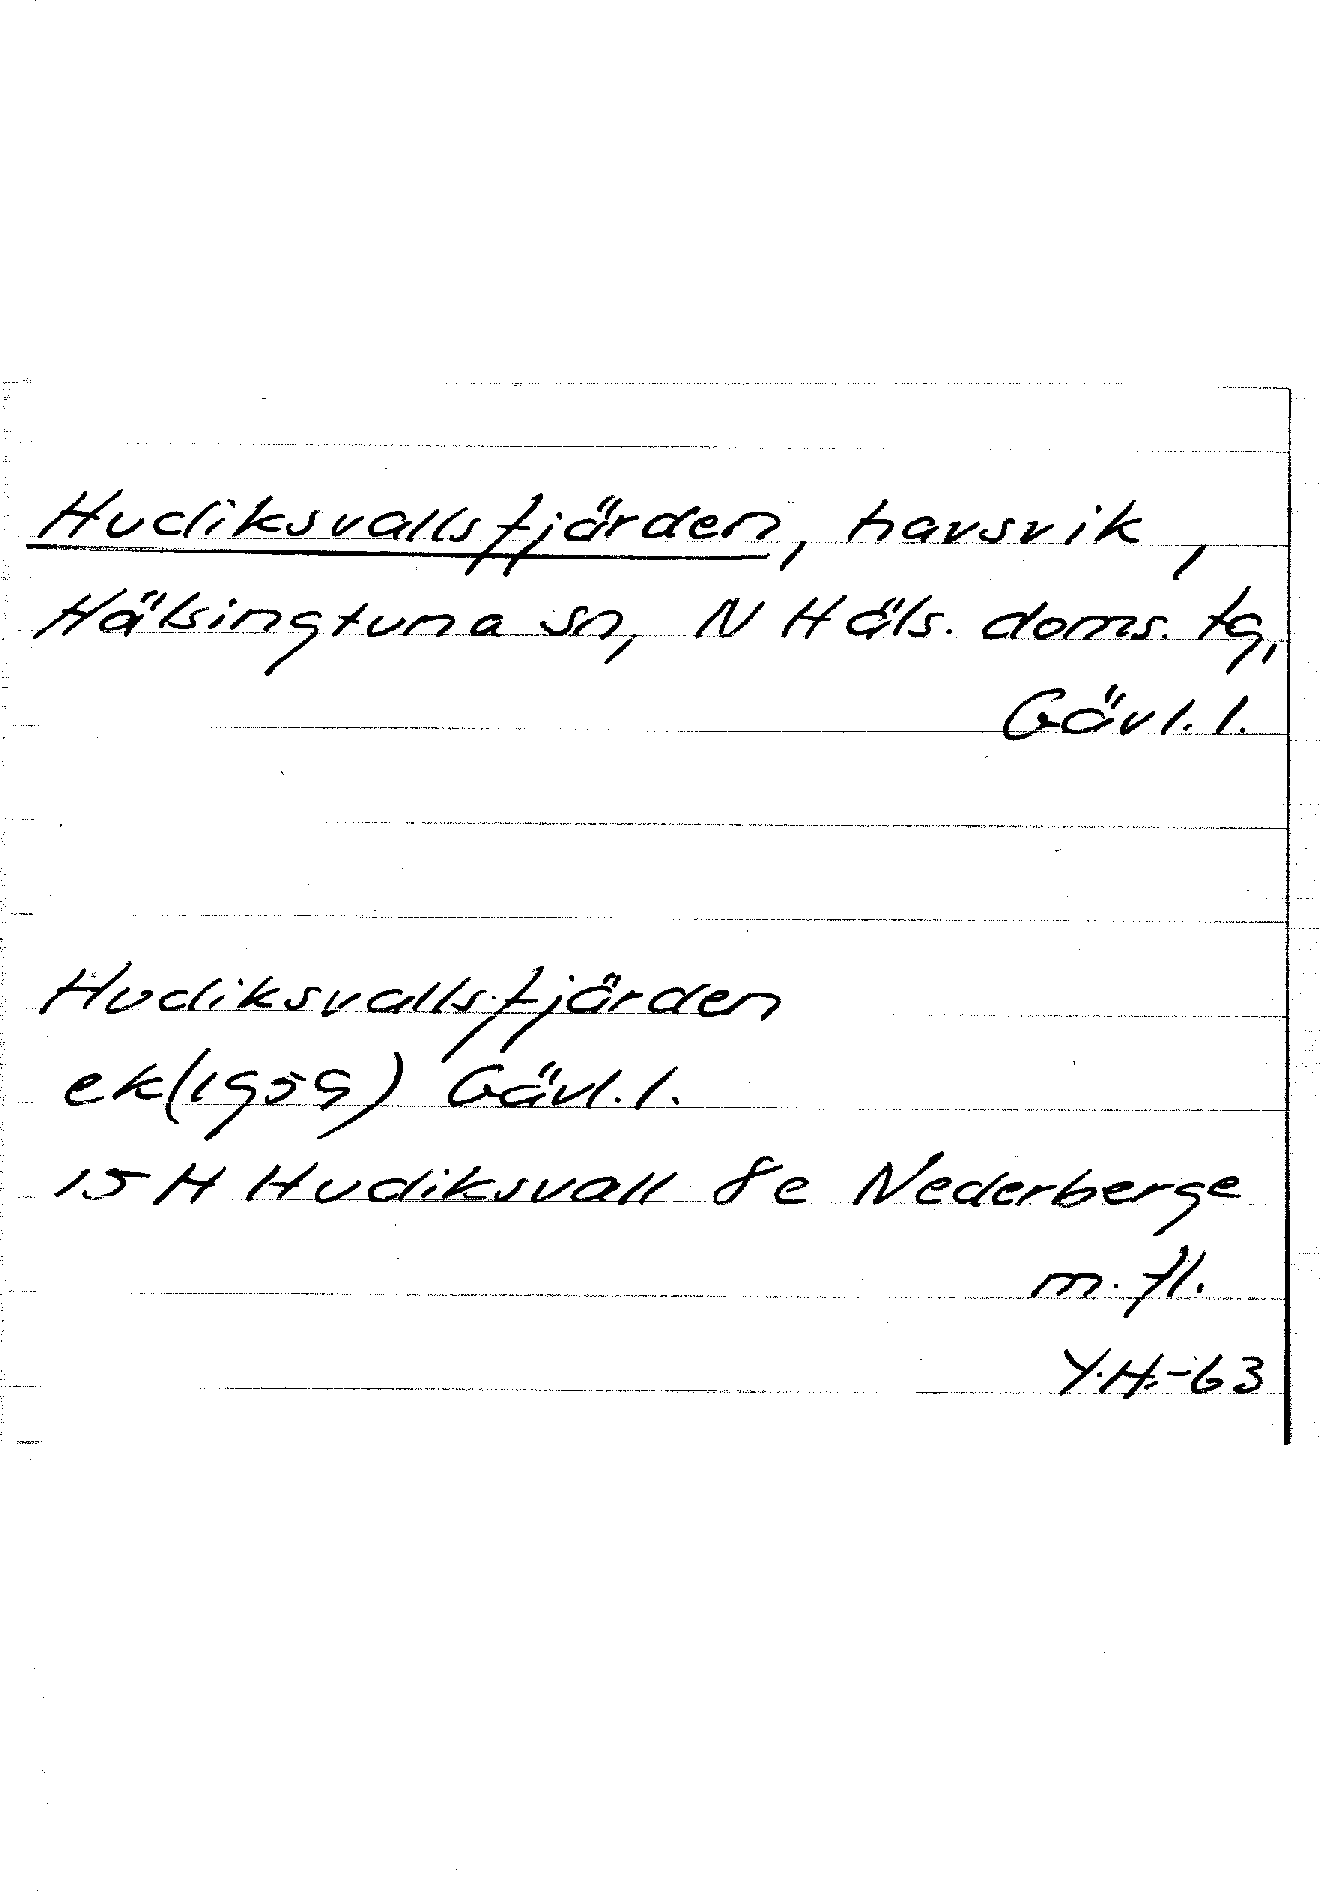 Hudiksvallsfjärden, havsvik,
Hälsingtuna sn, N Häls. doms. tg,
Gävl. l.
Hudiksvallsfjärden
ek(1959) Gävl. l.
15 H Hudiksvall 8e Nederberge
m. fl.
Y.H.-63